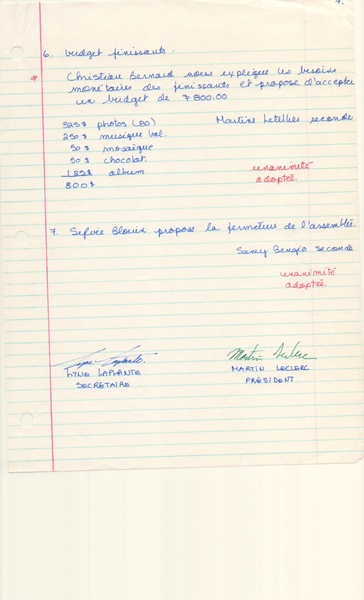 7.
6. budget finissants.
* Christian Bernard nous explique les besoins
monétaires des finissants et propose d'accepter
un budget de $ 800.00
325$ photos (80) Martine Letellier seconde
250$ musique bal.
50$ mosaïque
50$ chocolat.
125$ album
800$
unanimité
adoptée.
7. Sylvie Blouin propose la fermeture de l'assemblée.
Samy Bengio seconde
unanimité
adoptée.
LYNE LAPLANTE
SECRÉTAIRE
Martin Leclerc
MARTIN LECLERC
PRÉSIDENT